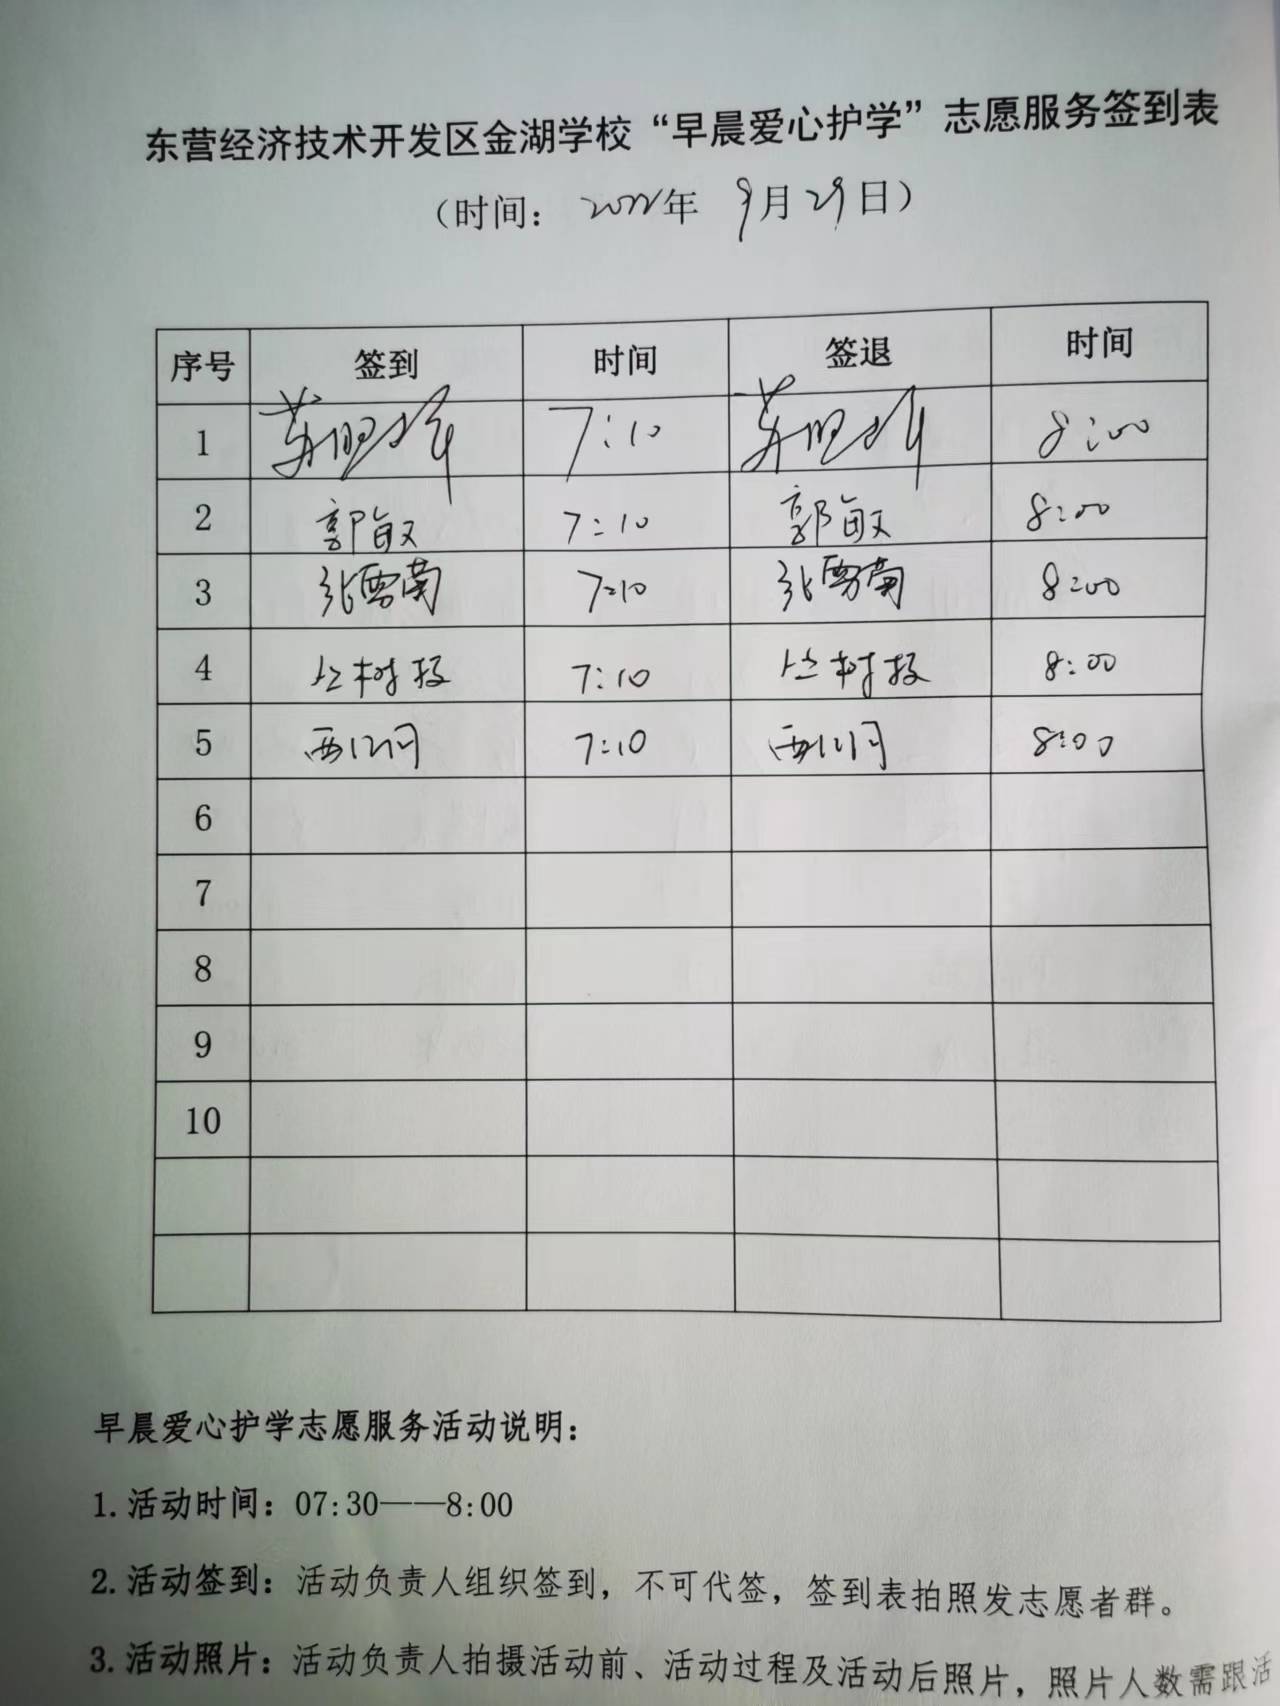 东营经济技术开发区金湖学校“早晨爱心护学”志愿服务签到表
（时间： 2022年 9月29日）
序号 签到 时间 签退 时间
1 7:10 8:00
2 郭敏 7:10 郭敏 8:00
3 张雪菊 7:10 张雪菊 8:00
4 丛树 7:10 丛树 8:00
5 7:10 8:00
6
7
8
9
10
早晨爱心护学志愿服务活动说明：
1.活动时间：07:30——8:00
2.活动签到：活动负责人组织签到，不可代签，签到表拍照发志愿者群。
3.活动照片：活动负责人拍摄活动前、活动过程及活动后照片，照片人数需跟活